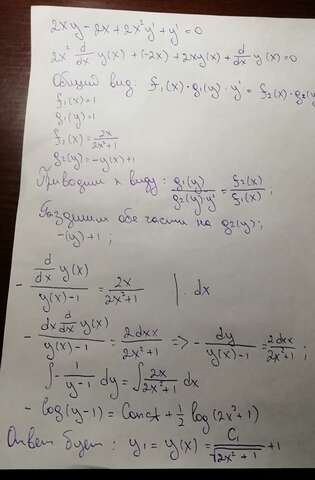 2xy - 2x + 2x²y' + y' = 0
2x² d/dx y(x) + (-2x) + 2xy(x) + d/dx y(x) = 0
Общий вид: f₁(x)·g₁(y)·y' = f₂(x)·g₂(y
f₁(x) = 1
g₁(y) = 1
f₂(x) = 2x/(2x²+1)
g₂(y) = -y(x)+1
Приводим к виду: g₁(y)/g₂(y)·y' = f₂(x)/f₁(x);
Разделим обе части на g₂(y);
-(y)+1;
- (d/dx y(x))/(y(x)-1) = 2x/(2x²+1) |·dx
- (dx d/dx y(x))/(y(x)-1) = 2dxx/(2x²+1) => - dy/(y(x)-1) = 2dxx/(2x²+1);
∫- 1/(y-1) dy = ∫ 2x/(2x²+1) dx
- log(y-1) = Const + 1/2 log(2x²+1)
Ответ будет: y₁ = y(x) = C₁/√(2x²+1) + 1